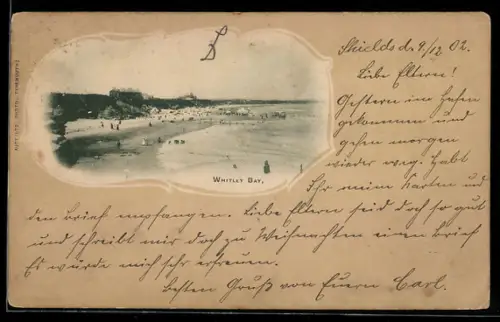 Shields d. 9/12 02.
Liebe Eltern!
Gestern im Hafen
gekommen und
gehen morgen
wieder weg. Habt
Ihr meine Karten und
den brief empfangen. Liebe Eltern seid doch so gut
und schreibt mir doch zu Weihnachten einen brief
Es würde mich sehr erfreuen.
besten Gruß von Euern Carl.
WHITLEY BAY.